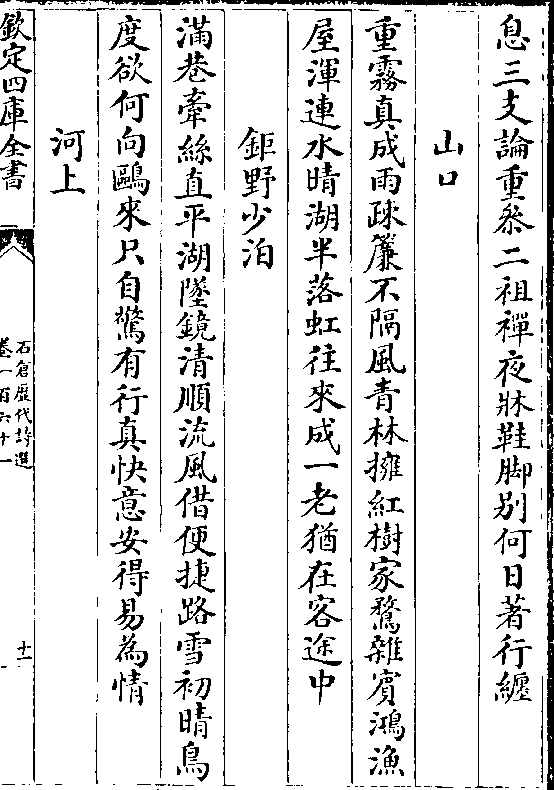 息三支論重參二祖禪夜牀鞋脚别何日著行纒
山口
重霧真成雨疎簾不隔風青林擁紅樹家鶩雜賓鴻漁
屋渾連水晴湖半落虹往來成一老猶在客途中
鉅野少泊
滿巷牽絲直平湖墜鏡清順流風借便捷路雪初晴鳥
度欲何向鷗來只自驚有行真快意安得易為情
河上
欽定四庫全書
石倉歷代詩選
卷一百六十一
十一